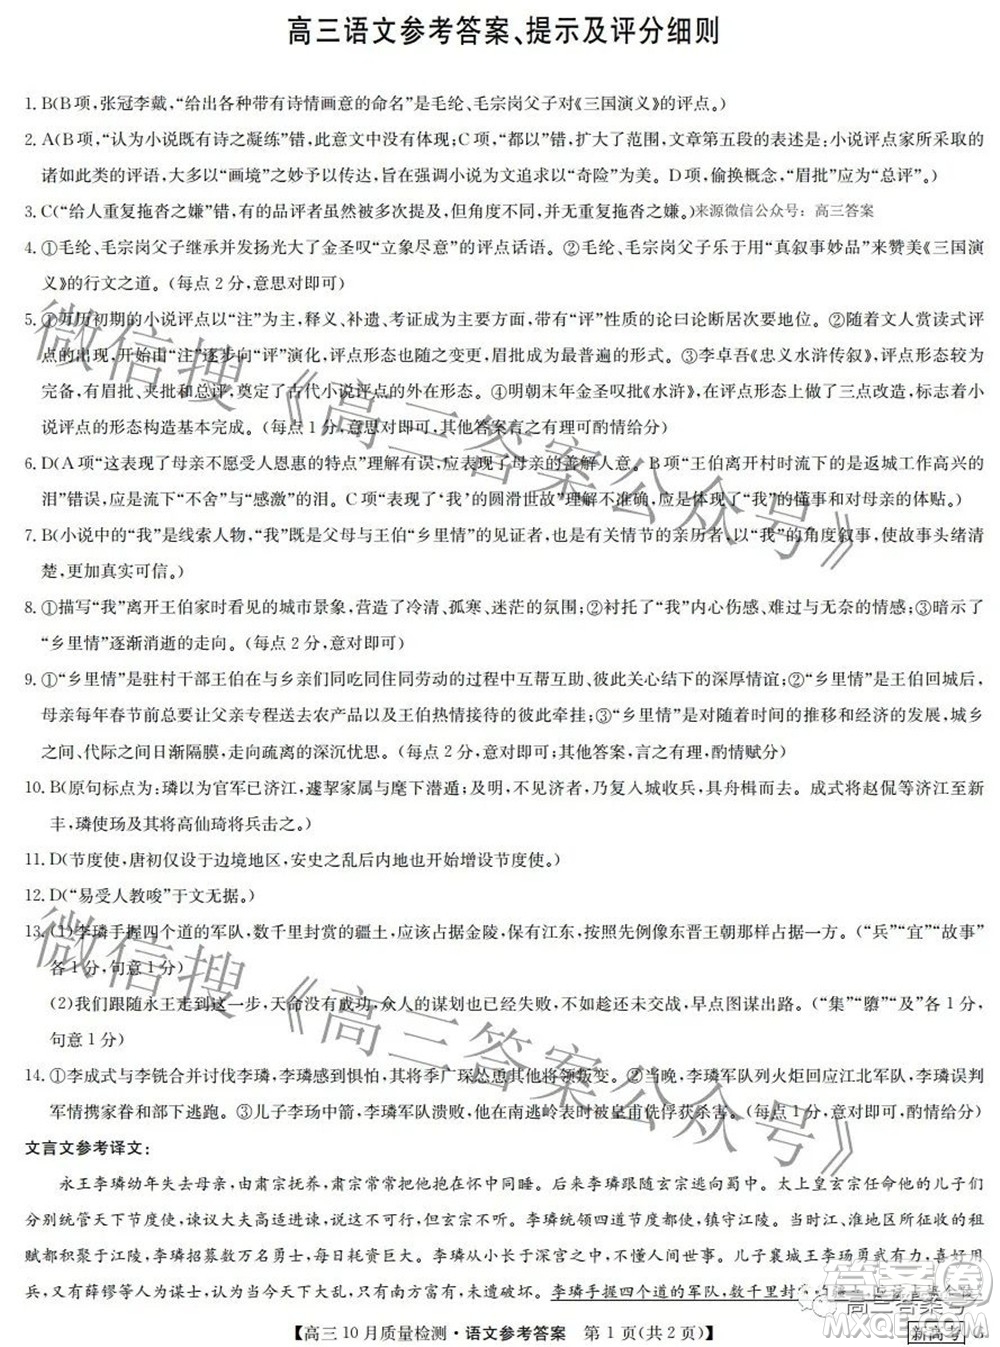 高三语文参考答案、提示及评分细则
1. B(B项,张冠李戴,“给出各种带有诗情画意的命名”是毛纶、毛宗岗父子对《三国演义》的评点。)
2. A(B项,“认为小说既有诗之凝练”错,此意文中没有体现;C项,“都以”错,扩大了范围,文章第五段的表述是:小说评点家所采取的
诸如此类的评语,大多以“画境”之奇妙予以传达,旨在强调小说为文追求以“奇险”为美。D项,偷换概念,“眉批”应为“总评”。)
3. C(“给人重复拖沓之嫌”错,有的品评者虽然被多次提及,但角度不同,并无重复拖沓之嫌。)来源微信公众号：高三答案
4. ①毛纶、毛宗岗父子继承并发扬光大了金圣叹“立象尽意”的评点话语。②毛纶、毛宗岗父子乐于用“真叙事妙品”来赞美《三国演
义》的行文之道。(每点2分,意思对即可)
5. ①万历初期的小说评点以“注”为主,释义、补遗、考证成为主要方面,带有“评”性质的论曰论断居次要地位。②随着文人赏读式评
点的出现,开始由“注”逐步向“评”演化,评点形态也随之变化,眉批成为最普遍的形式。③李卓吾《忠义水浒传叙》,评点形态较为
完备,有眉批、夹批和总评,奠定了古代小说评点的外在形态。④明朝末年金圣叹批《水浒》,在评点形态上做了三点改造,标志着小
说评点的形态构造基本完成。(每点1分,意思对即可,其他答案言之有理可酌情给分)
6. D(A项“这表现了母亲不愿受人恩惠的特点”理解有误,应是表现了母亲的善解人意。B项“王伯离开村时流下的是返城工作高兴的
泪”错误,应是流下“不舍”与“感激”的泪。C项“表现了‘我’的圆滑世故”理解不准确,应是表现了“我”的懂事和对母亲的体贴。)
7. B(小说中的“我”是线索人物,“我”既是父母与王伯“乡里情”的见证者,也是有关情节的亲历者,以“我”的角度叙事,使故事头绪清
楚,更加真实可信。)
8. ①描写“我”离开王伯家时看见的城市景象,营造了冷清、孤寒、迷茫的氛围;②衬托了“我”内心伤感、难过与无奈的情感;③暗示了
“乡里情”逐渐消逝的走向。(每点2分,意对即可)
9. ①“乡里情”是驻村干部王伯在与乡亲们同吃同住同劳动的过程中互帮互助、彼此关心结下的深厚情谊;②“乡里情”是王伯回城后,
母亲每年春节前总要让父亲专程送去农产品以及王伯热情接待的彼此牵挂;③“乡里情”是对随着时间的推移和经济的发展,城乡
之间、代际之间日渐隔膜,走向疏离的深沉忧思。(每点2分,意对即可;其他答案,言之有理,酌情赋分)
10. B(原句标点为:璘以为官军已济江,遽挈家属与麾下潜遁;及明,不见济者,乃复入城收兵,具舟楫而去。成式将赵侃等济江至新
丰,璘使玚及其将高仙琦将兵击之。)
11. D(节度使,唐初仅设于边境地区,安史之乱后内地也开始增设节度使。)
12. D(“易受人教唆”于文无据。)
13. (1)李璘手握四个道的军队,数千里封赏的疆土,应该占据金陵,保有江东,按照先例像东晋王朝那样占据一方。(“兵”“宜”“故事”
各1分,句意1分)
(2)我们跟随永王走到这一步,天命没有成功,众人的谋划也已经失败,不如趁还未交战,早点图谋出路。(“集”“隳”“及”各1分,
句意1分)
14. ①李成式与李铣合并讨伐李璘,李璘感到惧怕,其将季广琛怂恿其他将领叛变。②当晚,李璘军队列火炬回应江北军队,李璘误判
军情携家眷和部下逃跑。③儿子李玚中箭,李璘军队溃败,他在南逃岭表时被皇甫侁俘获杀害。(每点1分,意思对即可,酌情给分)
文言文参考译文:
永王李璘幼年失去母亲,由肃宗抚养,肃宗常抱着他在怀中同睡。后来李璘跟随玄宗逃向蜀中。太上皇玄宗任命他的儿子们
分别统管天下节度使,谏议大夫高适进谏,说不可行,但玄宗不听。李璘统领四道节度都使,镇守江陵。当时江、淮地区所征收的租
赋都积聚于江陵,李璘招募数万名勇士,每日耗资巨大。李璘从小长于深宫之中,不懂人间世事。儿子襄城王李玚勇武有力,喜好用
兵,又有薛镠等人为谋士,认为当今天下大乱,只有南方完富,未遭破坏。李璘手握四个道的军队,数千里封
【高三10月质量检测·语文参考答案 第1页(共2页)】
新高考
高三答案号
微信搜《高三答案公众号》
微信搜《高三答案公众号》